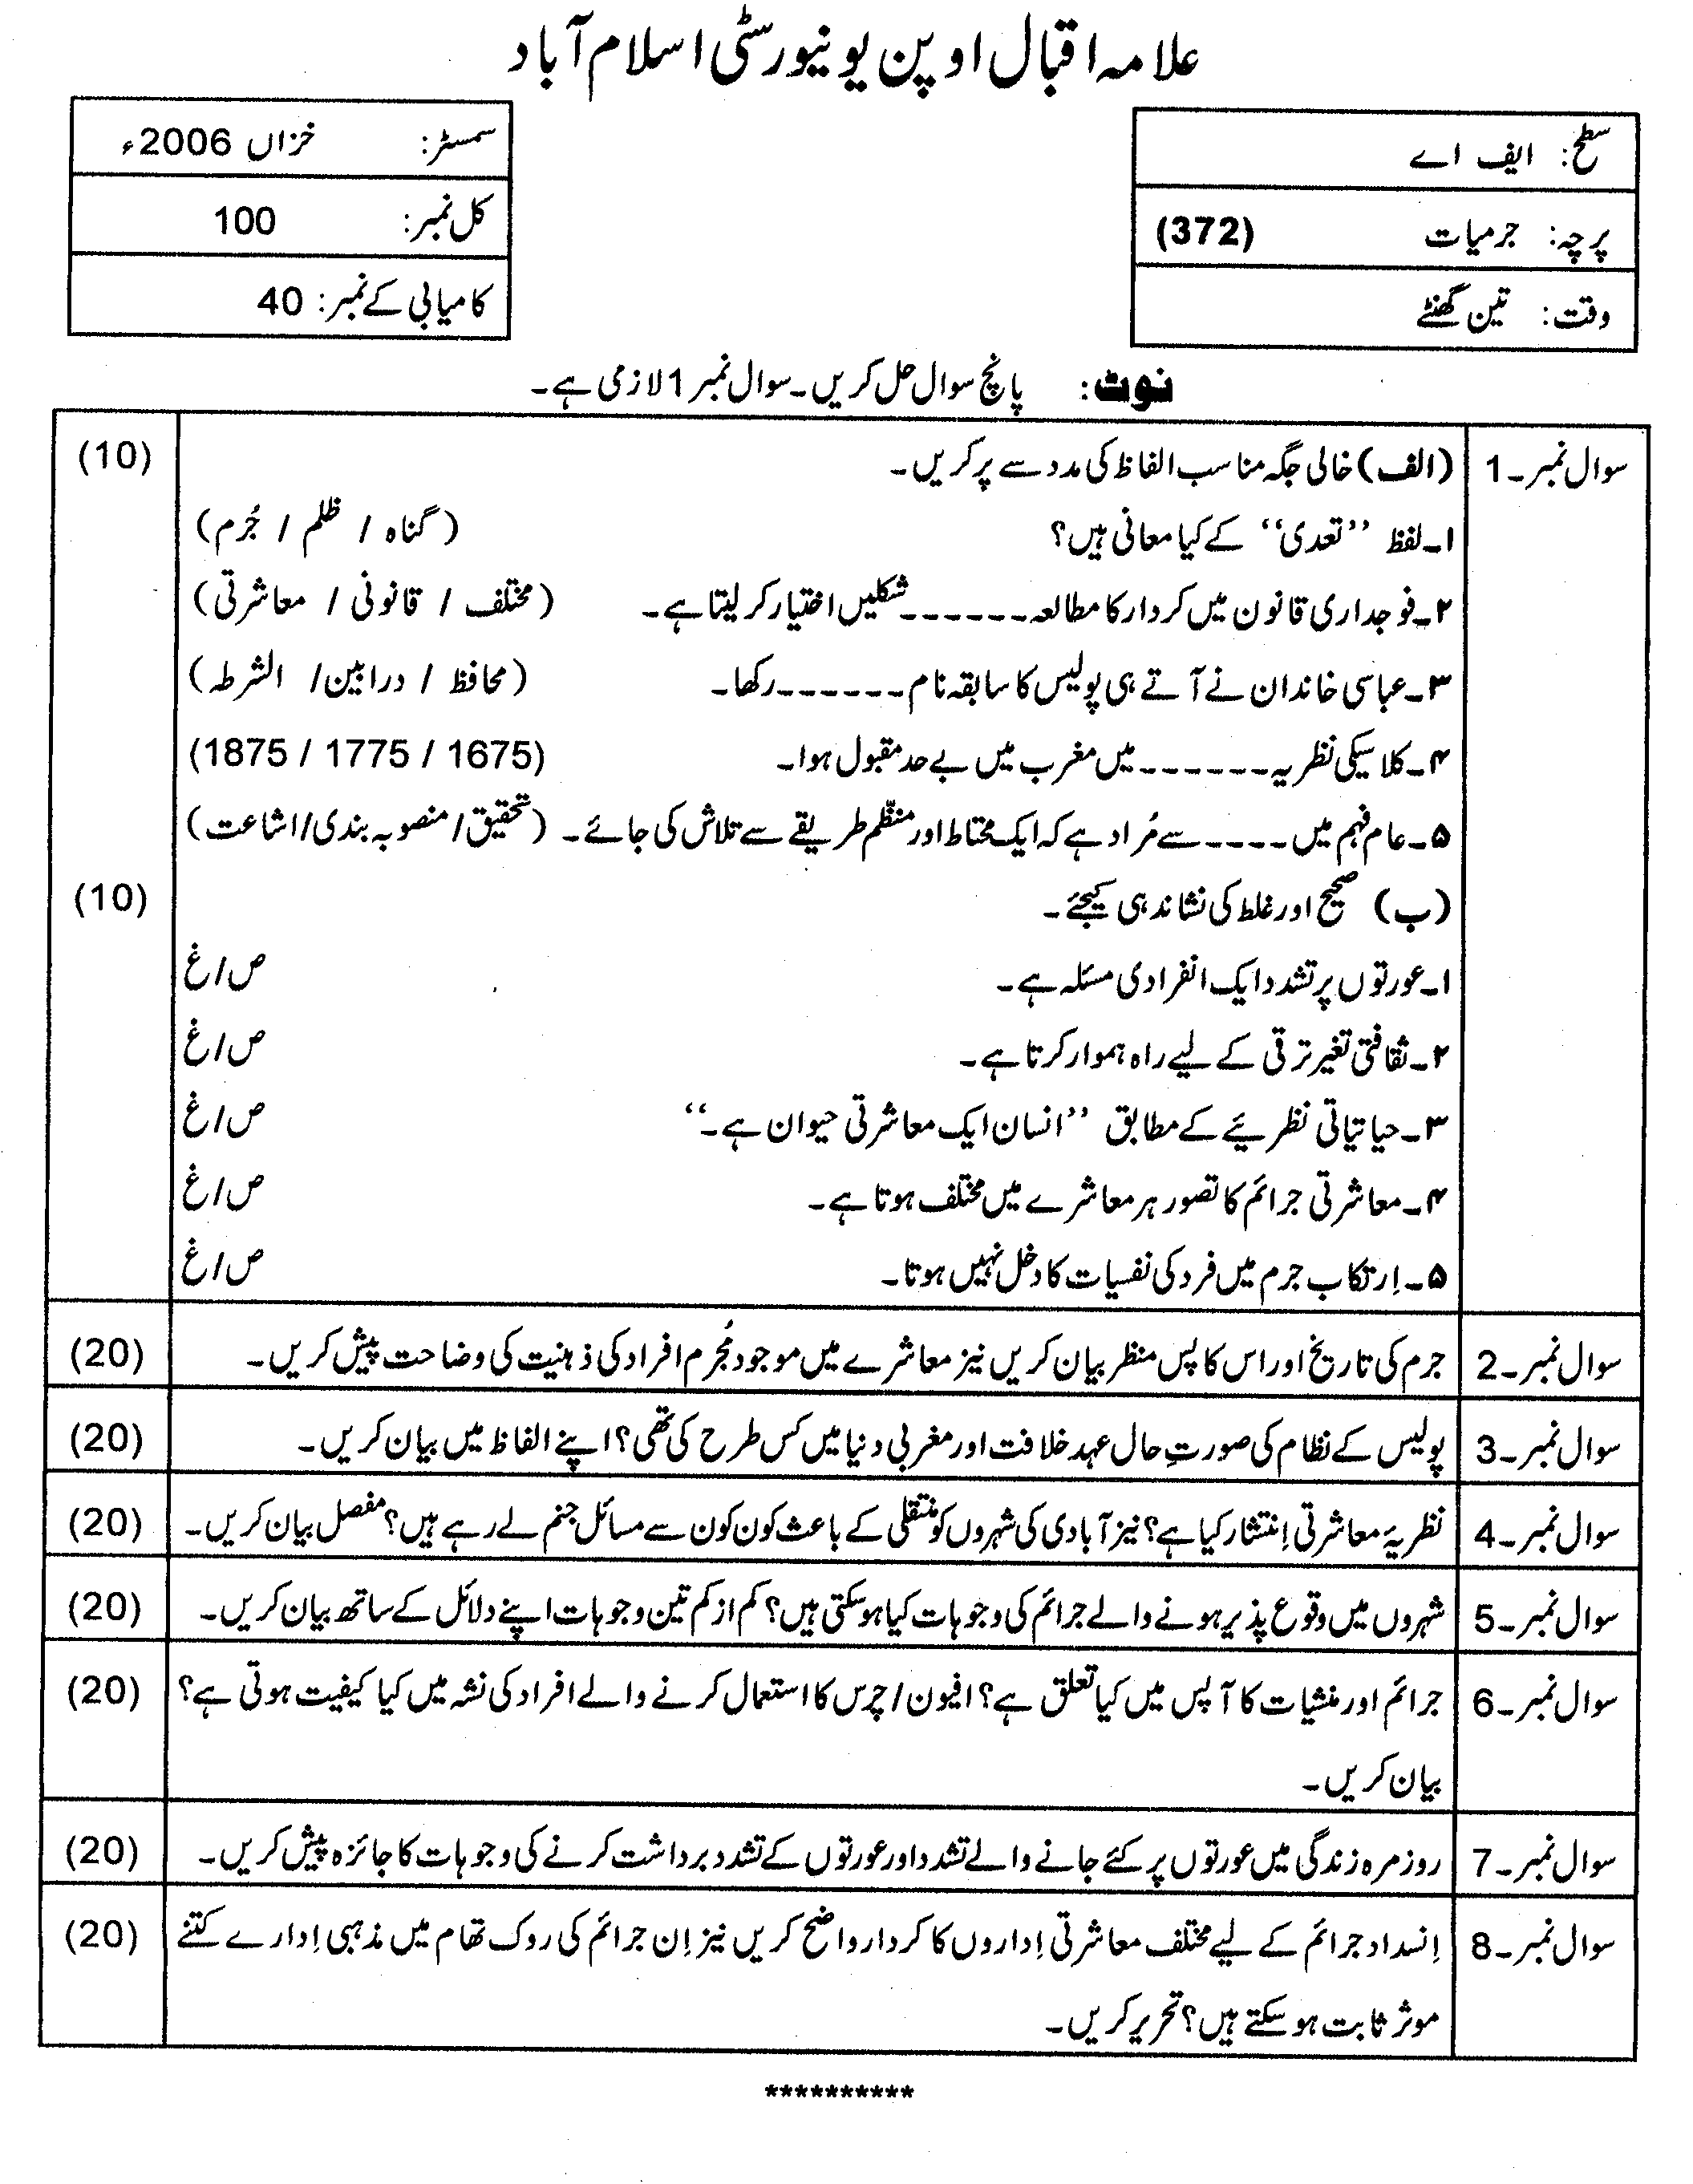 علامہ اقبال اوپن یونیورسٹی اسلام آباد
سطح: ایف اے
سمسٹر: خزاں 2006ء
پرچہ: جرمیات (372)
کل نمبر: 100
وقت: تین گھنٹے
کامیابی کے نمبر: 40
نوٹ: پانچ سوال حل کریں۔ سوال نمبر 1 لازمی ہے۔
سوال نمبر۔1 (الف) خالی جگہ مناسب الفاظ کی مدد سے پر کریں۔ (10)
۱۔ لفظ ’’تعدی‘‘ کے کیا معانی ہیں؟ (گناہ / ظلم / جُرم)
۲۔ فوجداری قانون میں کردار کا مطالعہ ۔۔۔۔۔۔ شکلیں اختیار کر لیتا ہے۔ (مختلف / قانونی / معاشرتی)
۳۔ عباسی خاندان نے آتے ہی پولیس کا سابقہ نام ۔۔۔۔۔۔ رکھا۔ (محافظ / درابین / الشرطہ)
۴۔ کلاسیکی نظریہ ۔۔۔۔۔۔ میں مغرب میں بے حد مقبول ہوا۔ (1675 / 1775 / 1875)
۵۔ عام فہم میں ۔۔۔۔ سے مُراد ہے کہ ایک محتاط اور منظّم طریقے سے تلاش کی جائے۔ (تحقیق/منصوبہ بندی/اشاعت)
(ب) صحیح اور غلط کی نشاندہی کیجئے۔ (10)
۱۔ عورتوں پر تشدد ایک انفرادی مسئلہ ہے۔ ص/غ
۲۔ ثقافتی تغیر ترقی کے لیے راہ ہموار کرتا ہے۔ ص/غ
۳۔ حیاتیاتی نظریئے کے مطابق ’’انسان ایک معاشرتی حیوان ہے۔‘‘ ص/غ
۴۔ معاشرتی جرائم کا تصور ہر معاشرے میں مختلف ہوتا ہے۔ ص/غ
۵۔ اِرتکاب جرم میں فرد کی نفسیات کا دخل نہیں ہوتا۔ ص/غ
سوال نمبر۔2 جرم کی تاریخ اور اس کا پس منظر بیان کریں نیز معاشرے میں موجود مُجرم افراد کی ذہنیت کی وضاحت پیش کریں۔ (20)
سوال نمبر۔3 پولیس کے نظام کی صورتِ حال عہد خلافت اور مغربی دنیا میں کس طرح کی تھی؟ اپنے الفاظ میں بیان کریں۔ (20)
سوال نمبر۔4 نظریۂ معاشرتی اِنتشار کیا ہے؟ نیز آبادی کی شہروں کو منتقلی کے باعث کون کون سے مسائل جنم لے رہے ہیں؟ مفصل بیان کریں۔ (20)
سوال نمبر۔5 شہروں میں وقوع پذیر ہونے والے جرائم کی وجوہات کیا ہو سکتی ہیں؟ کم از کم تین وجوہات اپنے دلائل کے ساتھ بیان کریں۔ (20)
سوال نمبر۔6 جرائم اور منشیات کا آپس میں کیا تعلق ہے؟ افیون/چرس کا استعمال کرنے والے افراد کی نشہ میں کیا کیفیت ہوتی ہے؟ (20)
بیان کریں۔
سوال نمبر۔7 روزمرہ زندگی میں عورتوں پر کئے جانے والے تشدد اور عورتوں کے تشدد برداشت کرنے کی وجوہات کا جائزہ پیش کریں۔ (20)
سوال نمبر۔8 اِنسداد جرائم کے لیے مختلف معاشرتی اِداروں کا کردار واضح کریں نیز اِن جرائم کی روک تھام میں مذہبی اِدارے کتنے (20)
موثر ثابت ہو سکتے ہیں؟ تحریر کریں۔
**********